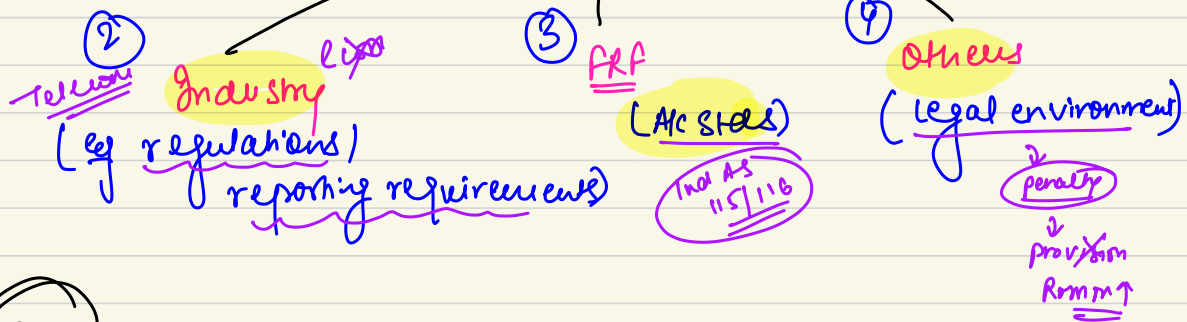 ②
Telecom Industry
(eg regulations)
reporting requirements)
③
FRF
(A/c Stds)
Ind AS
115/116
④
Others
(legal environment)
↓
penalty
↓
provision
Romm ↑